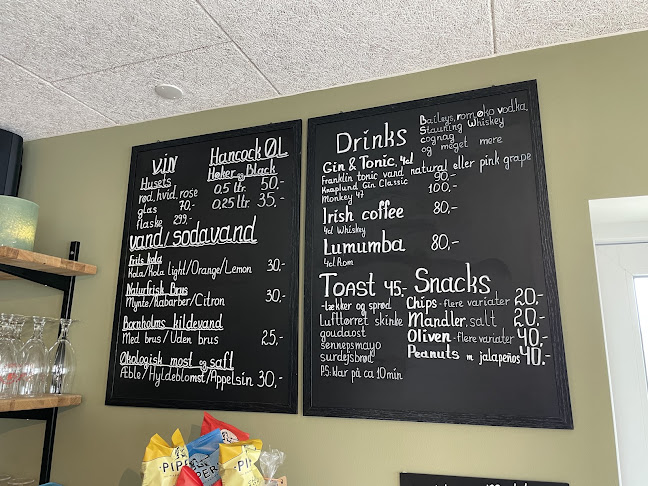 VIN
Husets
rød, hvid, rose
glas 70,-
flaske 299,-
Hancock ØL
Høker og Black
0,5 ltr. 50,-
0,25 ltr. 35,-
vand/sodavand
Frits kola
Kola/Kola light/Orange/Lemon 30,-
Naturfrisk Brus
Mynte/Rabarber/Citron 30,-
Bornholms kildevand
Med brus/Uden brus 25,-
Økologisk most og saft
Æble/Hyldeblomst/Appelsin 30,-
Drinks
Baileys, rom, øko vodka,
Stauning Whiskey
cognag
og meget mere
Gin & Tonic, 4cl
Franklin tonic vand natural eller pink grape
Knaplund Gin Classic 90,-
Monkey 47 100,-
Irish coffee 80,-
4cl Whiskey
Lumumba 80,-
4cl Rom
TOAST 45,-
-lækker og sprød
Lufttørret skinke
goudaost
sennepsmayo
surdejsbrød
P.S: klar på ca 10 min
Snacks
Chips - flere variater 20,-
Mandler, salt 20,-
Oliven - flere variater 40,-
Peanuts m jalapeños 40,-